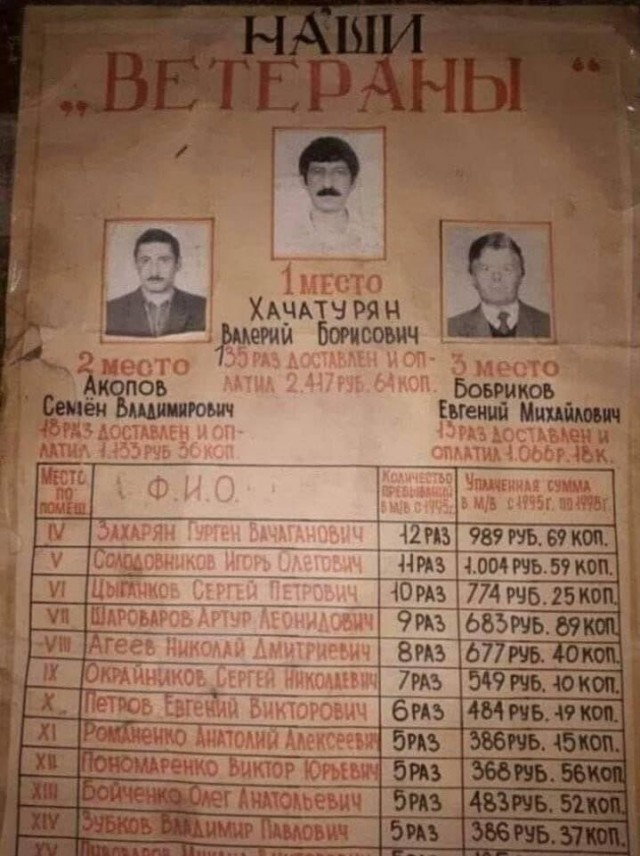 НАШИ
„ВЕТЕРАНЫ“
1 МЕСТО
ХАЧАТУРЯН
ВАЛЕРИЙ БОРИСОВИЧ
135 РАЗ ДОСТАВЛЕН И ОП-
ЛАТИЛ 2.417 РУБ. 64 КОП.
2 МЕСТО
АКОПОВ
СЕМЁН ВЛАДИМИРОВИЧ
РАЗ ДОСТАВЛЕН И ОП-
ЛАТИЛ 1.133 РУБ 36 КОП.
3 МЕСТО
БОБРИКОВ
ЕВГЕНИЙ МИХАЙЛОВИЧ
13 РАЗ ДОСТАВЛЕН И
ОПЛАТИЛ 1.066 Р. 18 К.
МЕСТО ПО ПОМЕЩ. Ф.И.О. КОЛИЧЕСТВО ПРЕБЫВАНИЙ В М/В С 1995г. УПЛАЧЕННАЯ СУММА В М/В С 1995г. ПО 1998г.
IV ЗАХАРЯН ГУРГЕН ВАЧАГАНОВИЧ 12 РАЗ 989 РУБ. 69 КОП.
V СОЛОДОВНИКОВ ИГОРЬ ОЛЕГОВИЧ 11 РАЗ 1.004 РУБ. 59 КОП.
VI ЦЫГАНКОВ СЕРГЕЙ ПЕТРОВИЧ 10 РАЗ 774 РУБ. 25 КОП.
VII ШАРОВАРОВ АРТУР ЛЕОНИДОВИЧ 9 РАЗ 683 РУБ. 89 КОП.
VIII АГЕЕВ НИКОЛАЙ ДМИТРИЕВИЧ 8 РАЗ 677 РУБ. 40 КОП.
IX ОКРАЙНИКОВ СЕРГЕЙ НИКОЛАЕВИЧ 7 РАЗ 549 РУБ. 10 КОП.
X ПЕТРОВ ЕВГЕНИЙ ВИКТОРОВИЧ 6 РАЗ 484 РУБ. 19 КОП.
XI РОМАНЕНКО АНАТОЛИЙ АЛЕКСЕЕВИЧ 5 РАЗ 386 РУБ. 15 КОП.
XII ПОНОМАРЕНКО ВИКТОР ЮРЬЕВИЧ 5 РАЗ 368 РУБ. 56 КОП
XIII БОЙЧЕНКО ОЛЕГ АНАТОЛЬЕВИЧ 5 РАЗ 483 РУБ. 52 КОП.
XIV ЗУБКОВ ВЛАДИМИР ПАВЛОВИЧ 5 РАЗ 386 РУБ. 37 КОП.
XV